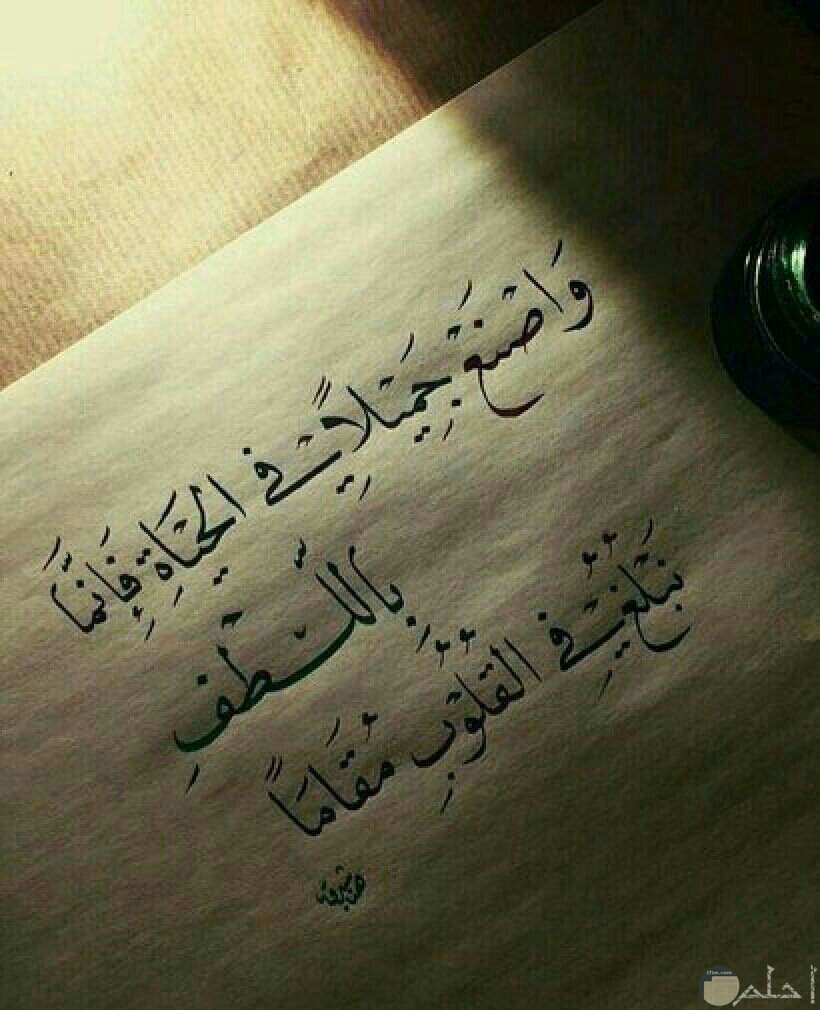 وَاصْنَعْ جَمِيْلًا فِيْ الْحَيَاةِ فَإِنَّمَا
بِاللُّطْفِ
نَبْلُغُ فِيْ الْقُلُوْبِ مُقَامَاً
احلم